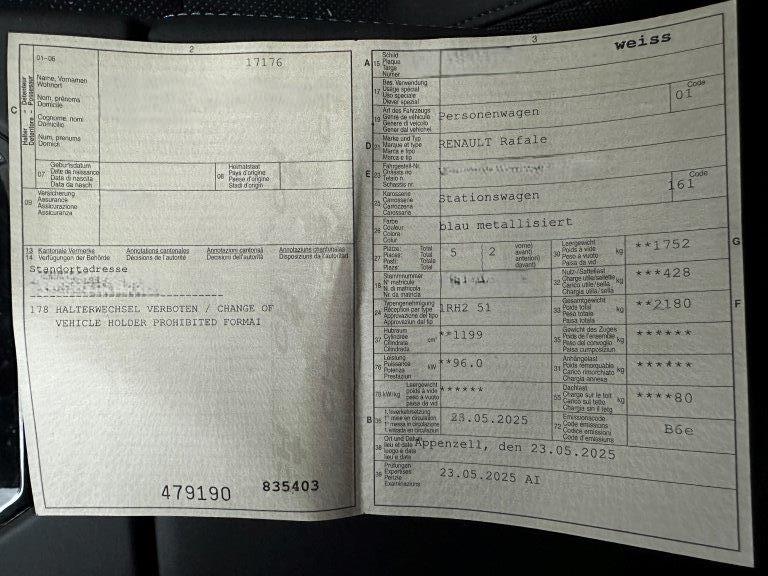 2
01-06
17176
Name, Vornamen
Wohnort
Nom, prénoms
Domicile
Cognome, nomi
Domicilio
Num, prenums
Domicil
C
Halter - Détenteur
Detentore - Possessur
07
Geburtsdatum
Date de naissance
Data di nascita
Data da nasch.
08
Heimatstaat
Pays d'origine
Paese d'origine
Stadi d'origin
09
Versicherung
Assurance
Assicurazione
Assicuranza
13
14
Kantonale Vermerke
Verfügungen der Behörde
Annotations cantonales
Décisions de l'autorité
Annotazioni cantonali
Decisioni dell'autorità
Annotaziuns chantunalas
Disposiziuns da l'autoritad
Standortadresse
178 HALTERWECHSEL VERBOTEN / CHANGE OF
VEHICLE HOLDER PROHIBITED FORMAI
479190 835403
3
weiss
A 15
Schild
Plaque
Targa
Numer
17
Bes. Verwendung
Usage spécial
Uso speciale
Diever spezial
Code
01
19
Art des Fahrzeugs
Genre de véhicule
Genere di veicolo
Gener dal vehichel
Personenwagen
D 21
Marke und Typ
Marque et type
Marca e tipo
Marca e tip
RENAULT Rafale
E 23
Fahrgestell-Nr.
Châssis no
Telaio n.
Schassis nr.
25
Karosserie
Carrosserie
Carrozzeria
Carossaria
Stationswagen
Code
161
26
Farbe
Couleur
Colore
Colur
blau metallisiert
27
Plätze: Total
Places: Total
Posti: Totale
Plazs: Total
5 2
vorne)
avant)
anteriori)
davant)
30
Leergewicht
Poids à vide
Peso a vuoto
Paisa da vid
kg
**1752
G
18
Stammnummer
N° matricule
N. di matricola
Nr. da matricla
32
Nutz-/Sattellast
Charge utile/sellette
Carico utile/sella
Chargia utila/sella
kg
***428
24
Typengenehmigung
Réception par type
Approvazione del tipo
Approvaziun dal tip
1RH2 51
33
Gesamtgewicht
Poids total
Peso totale
Paisa totala
kg
**2180
F
37
Hubraum
Cylindrée
Cilindrata
Cilindrada
cm³
**1199
35
Gewicht des Zuges
Poids de l'ensemble
Peso del convoglio
Paisa cumposiziun
kg
******
76
Leistung
Puissance
Potenza
Prestaziun
kW
**96.0
31
Anhängelast
Poids remorquable
Carico rimorchiato
Chargia annexa
kg
******
78 kW/kg
Leergewicht
poids à vide
peso a vuoto
paisa da vid
******
55
Dachlast
Charge sur le toit
Carico sul tetto
Chargia sin il tetg
kg
****80
B 36
1. Inverkehrsetzung
1re mise en circulation
1a messa in circolazione
1. entrada en circulaziun
23.05.2025
72
Emissionscode
Code émissions
Codice emissioni
Code d'emissiuns
B6e
38
Ort und Datum
lieu et date
luogo e data
lieu e data
Appenzell, den 23.05.2025
39
Prüfungen
Expertises
Perizie
Examinaziuns
23.05.2025 AI